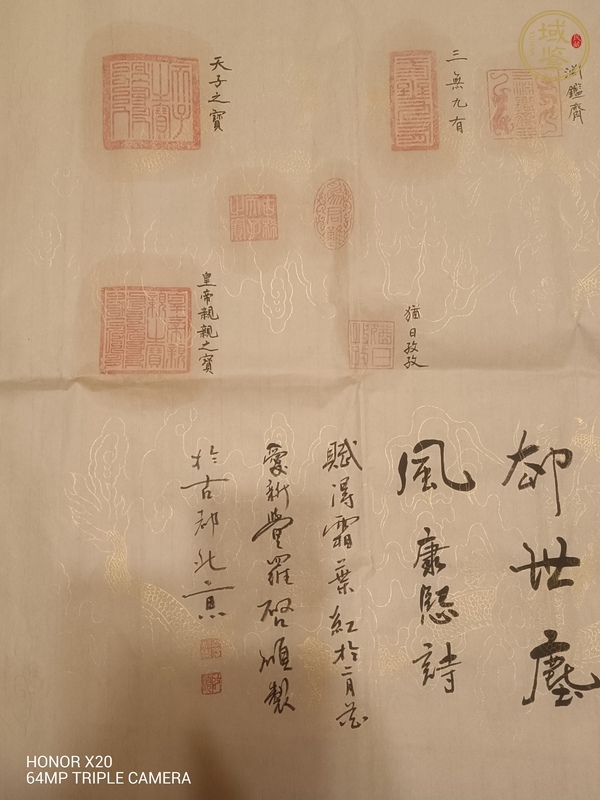 淵鑑齋
三無九有
天子之寶
猶日孜孜
皇帝親親之寶
却世塵
風康熙詩
賦得霜葉紅於二月花
愛新覺羅啓順製
於古都北京
HONOR X20
64MP TRIPLE CAMERA